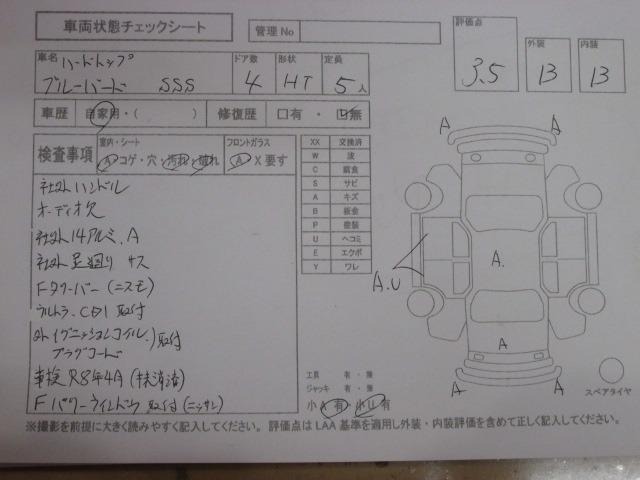 車両状態チェックシート
管理No
評価点
3.5
外装
B
内装
B
車名
ハードトップ
ブルーバード SSS
ドア数
4
形状
HT
定員
5人
車歴 自家用・( )
修復歴 口有・口無
検査事項
室内・シート
A コゲ・穴・汚れ・破れ
フロントガラス
A X要す
社外ハンドル
オーディオ欠
社外14アルミ.A
社外足廻り サス
Fタワーバー(ニスモ)
ウルトラ.CDI取付
外イグニッションコイル.
プラグコード
)取付
車検R8年4A(抹消済)
Fパワーウインドウ取付(ニッサン)
XX 交換済
W 波
C 腐食
S サビ
A キズ
B 鈑金
P 塗装
U ヘコミ
E エクボ
Y ワレ
A
A
A.U
A.
A
A
A
スペアタイヤ
工具 有・無
ジャッキ 有・無
小A有 小U有
※撮影を前提に大きく読みやすく記入してください。評価点はLAA基準を適用し外装・内装評価を含めて正しく記入してください。